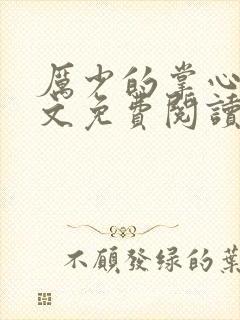 厲少的掌心
文免費閱讀
不願發绿的葉